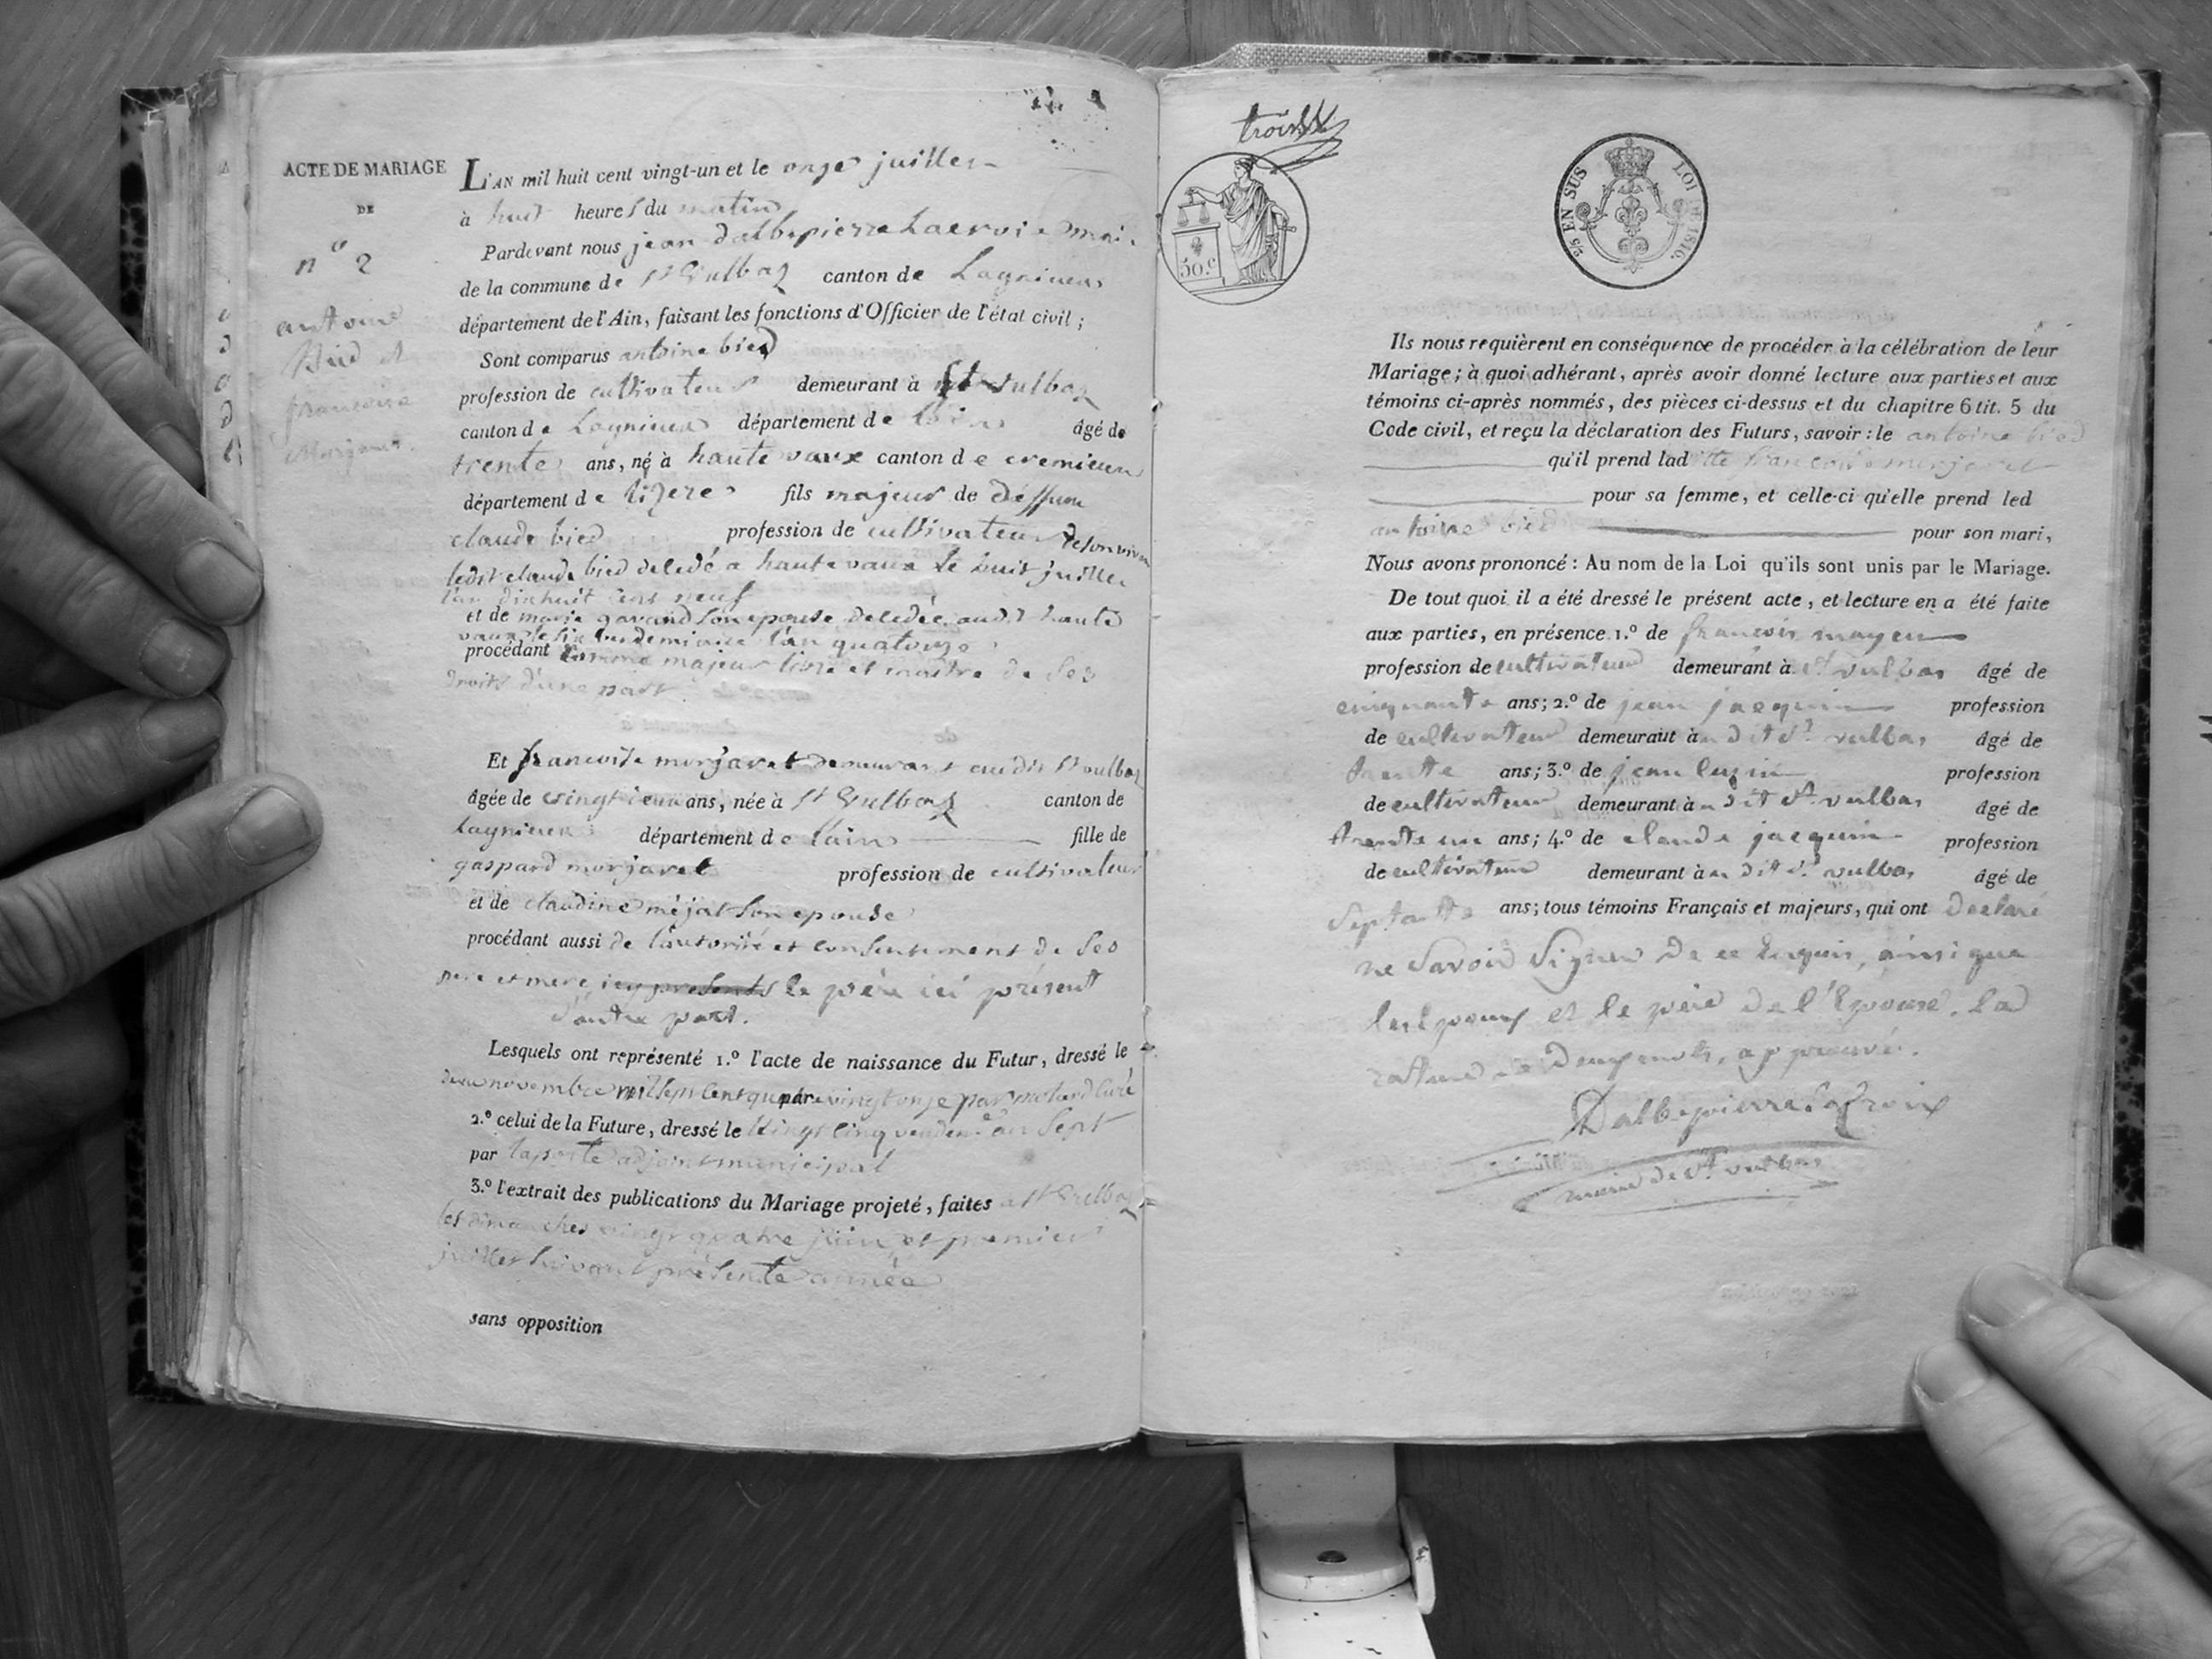 ACTE DE MARIAGE
DE
n° 2
antoine
Bied et
francoise
Morjaret.
L'AN mil huit cent vingt-un et le onze juillet
à huit heures du matin
Pardevant nous jean dalbepierre Lacroix maire
de la commune de St Vulbaz canton de Lagnieux
département de l'Ain, faisant les fonctions d'Officier de l'état civil ;
Sont comparus antoine bied
profession de cultivateur demeurant à St Vulbaz
canton de Lagnieux département de lain âgé de
trente ans, né à haute vaux canton de cremieux
département de lizere fils majeur de deffun
claude bied profession de cultivateur de son vivan
ledit claude bied décédé a haute vaux le huit juillet
l'an dixhuit cent neuf
et de marie gavand son epouse décédée audit haute
vaux le six l'an quatorze
procédant comme majeur libre et maitre de ses
droits d'une part.
Et francoise morjaret demeurant audit St vulbaz
âgée de vingt deux ans, née à St Vulbaz canton de
lagnieux département de lain fille de
gaspard morjaret profession de cultivateur
et de claudine méjat son epouse
procédant aussi de l'autorité et consentement de ses
pere et mere icy presents le père ici présent
d'autre part.
Lesquels ont représenté 1.° l'acte de naissance du Futur, dressé le
deux novembre mil sept cent quatre vingt onze par molard curé
2.° celui de la Future, dressé le vingt cinq vendem.e an sept
par laporte adjoint municipal
3.° l'extrait des publications du Mariage projeté, faites a St Vulbaz
les dimanches vingt quatre juin et premier
juillet suivant présente année
sans opposition
trois
50.c
2/5 EN SUS LOI DE 1816.
Ils nous requièrent en conséquence de procéder à la célébration de leur
Mariage ; à quoi adhérant, après avoir donné lecture aux parties et aux
témoins ci-après nommés, des pièces ci-dessus et du chapitre 6 tit. 5 du
Code civil, et reçu la déclaration des Futurs, savoir : le antoine bied
qu'il prend lad itte francoise morjaret
pour sa femme, et celle-ci qu'elle prend led
antoine bied pour son mari,
Nous avons prononcé : Au nom de la Loi qu'ils sont unis par le Mariage.
De tout quoi il a été dressé le présent acte, et lecture en a été faite
aux parties, en présence 1.° de francois mayen
profession de cultivateur demeurant à St vulbas âgé de
cinquante ans ; 2.° de jean jacquin profession
de cultivateur demeurant au dit St vulbas âgé de
trente ans ; 3.° de jean profession
de cultivateur demeurant au dit St vulbas âgé de
trente un ans ; 4.° de claude jacquin profession
de cultivateur demeurant au dit St vulbas âgé de
septante ans ; tous témoins Français et majeurs, qui ont declaré
ne savoir signer de ce enquis, ainsi que
les epoux et le père de l'Epouse. la
rature de deux mots, approuvé.
Dalbepierre LaCroix
maire de St vulbas